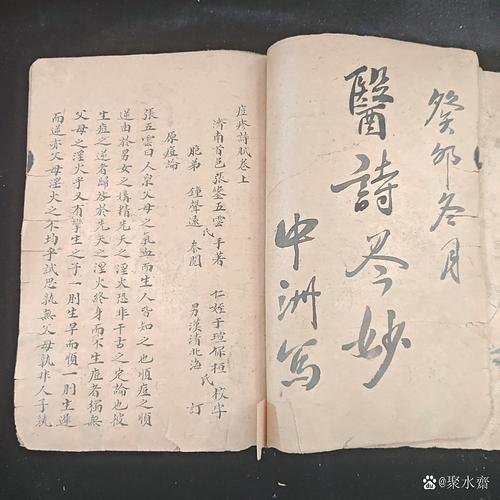 癸卯冬月
醫詩參妙
中洲寫
痘疹詩賦卷上
濟南首邑張鑾五雲手著 仁姪于瑄保桓氏校字
胞弟鍾聲遠氏參閱 男漢清北海訂
原痘論
張五雲曰人稟父母之氣血而生人皆知之也順痘之順
逆由於男女之搆精先天之淫火隱非千古之定論也彼
生痘之逆者歸於先天之淫火終身而不生痘者獨無
父母之淫火乎又有孿生之子一則生早而順一則生遲
而逆亦父母淫火之不均乎試思孰無父母孰非人子孰
聚水齋